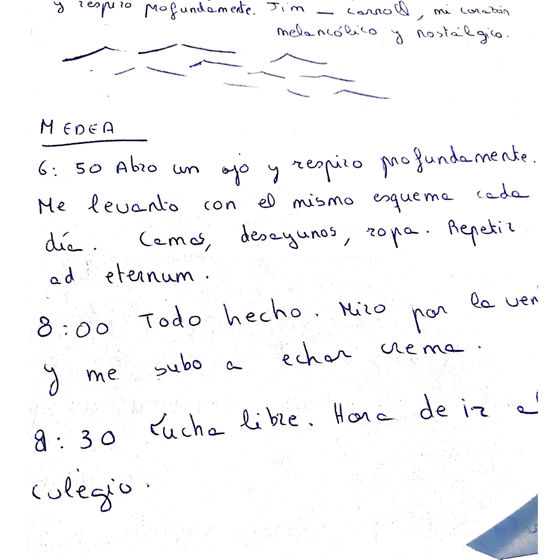 y respiro profundamente. Jim — Carroll, mi corazón
melancólico y nostálgico.
MEDEA
6:50 Abro un ojo y respiro profundamente.
Me levanto con el mismo esquema cada
día. Camas, desayunos, ropa. Repetir
ad eternum.
8:00 Todo hecho. Miro por la ven
y me subo a echar crema.
8:30 Lucha libre. Hora de ir a
colegio.